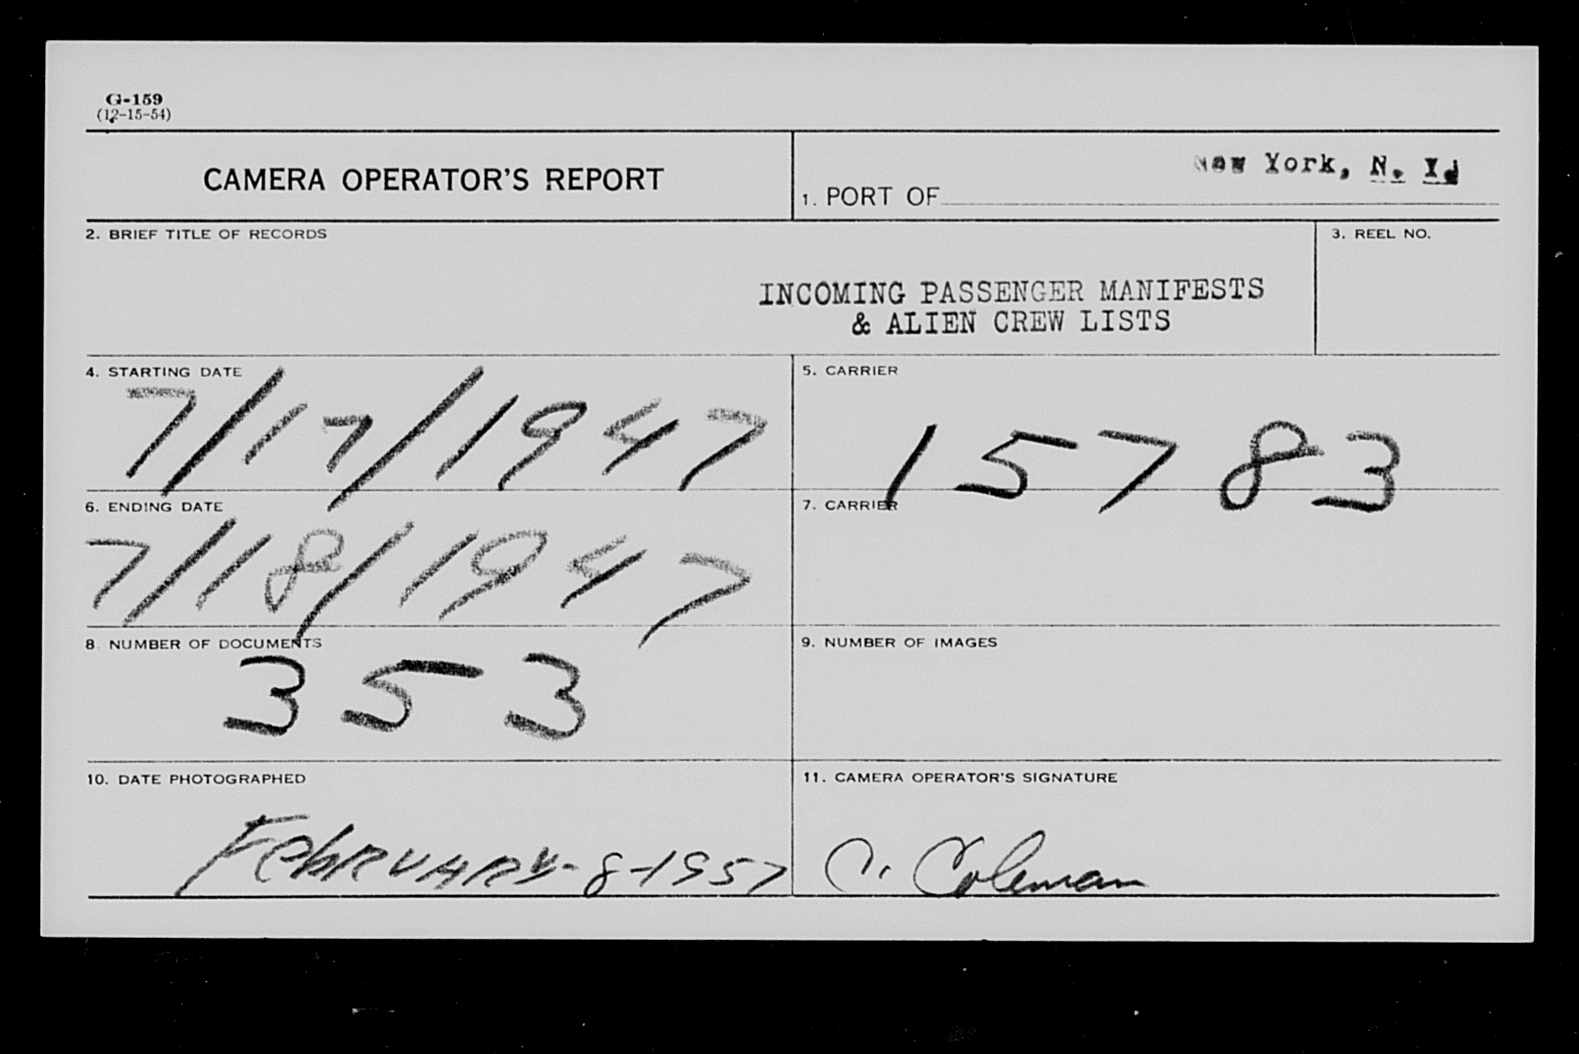 G-159
(12-15-54)
CAMERA OPERATOR'S REPORT
1. PORT OF New York, N. Y.
2. BRIEF TITLE OF RECORDS
INCOMING PASSENGER MANIFESTS
& ALIEN CREW LISTS
3. REEL NO.
4. STARTING DATE
7/17/1947
5. CARRIER
15783
6. ENDING DATE
7/18/1947
7. CARRIER
8. NUMBER OF DOCUMENTS
353
9. NUMBER OF IMAGES
10. DATE PHOTOGRAPHED
FebRUARY-8-1957
11. CAMERA OPERATOR'S SIGNATURE
C. Coleman